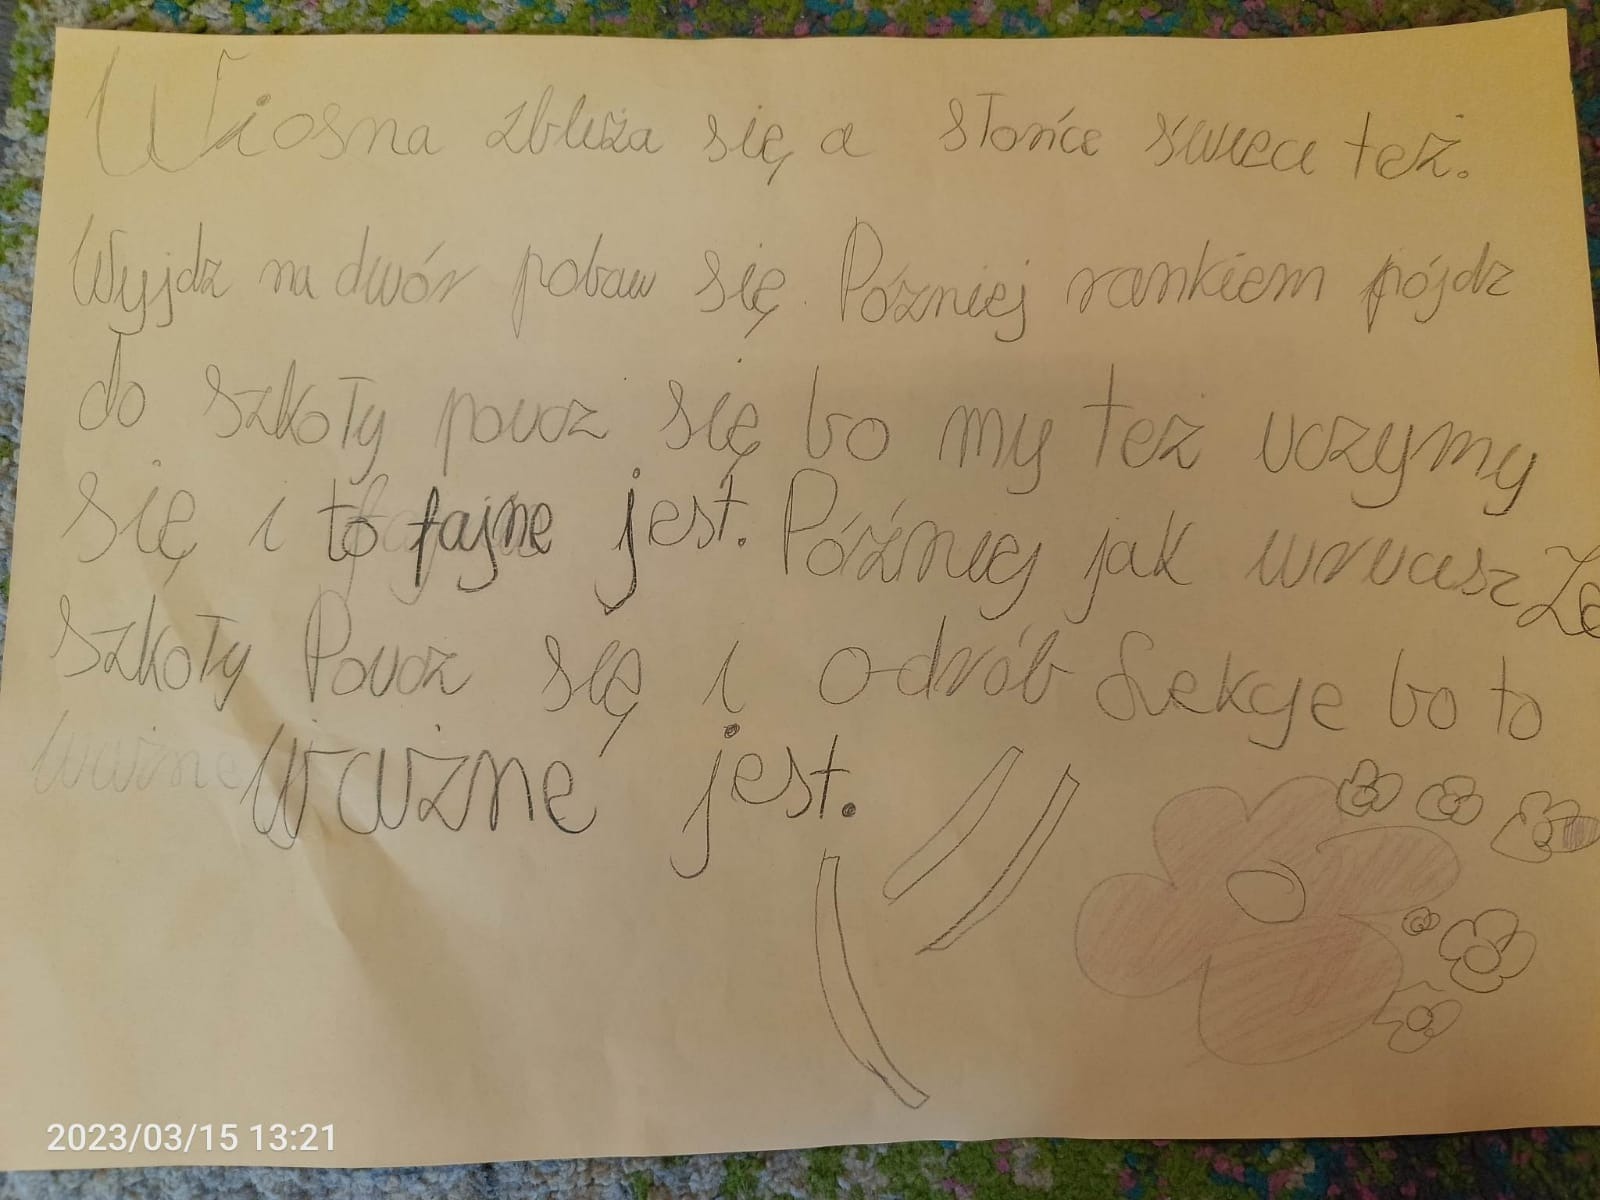 Wiosna zbliża się a słońce świeci też.
Wyjdz na dwór pobaw się. Pózniej rankiem pójdz
do szkoły poucz się bo my też uczymy
się i to fajne jest. Później jak wrucisz Ze
szkoły Poucz się i odrób Lekcje bo to
ważne ważne jest.
2023/03/15 13:21